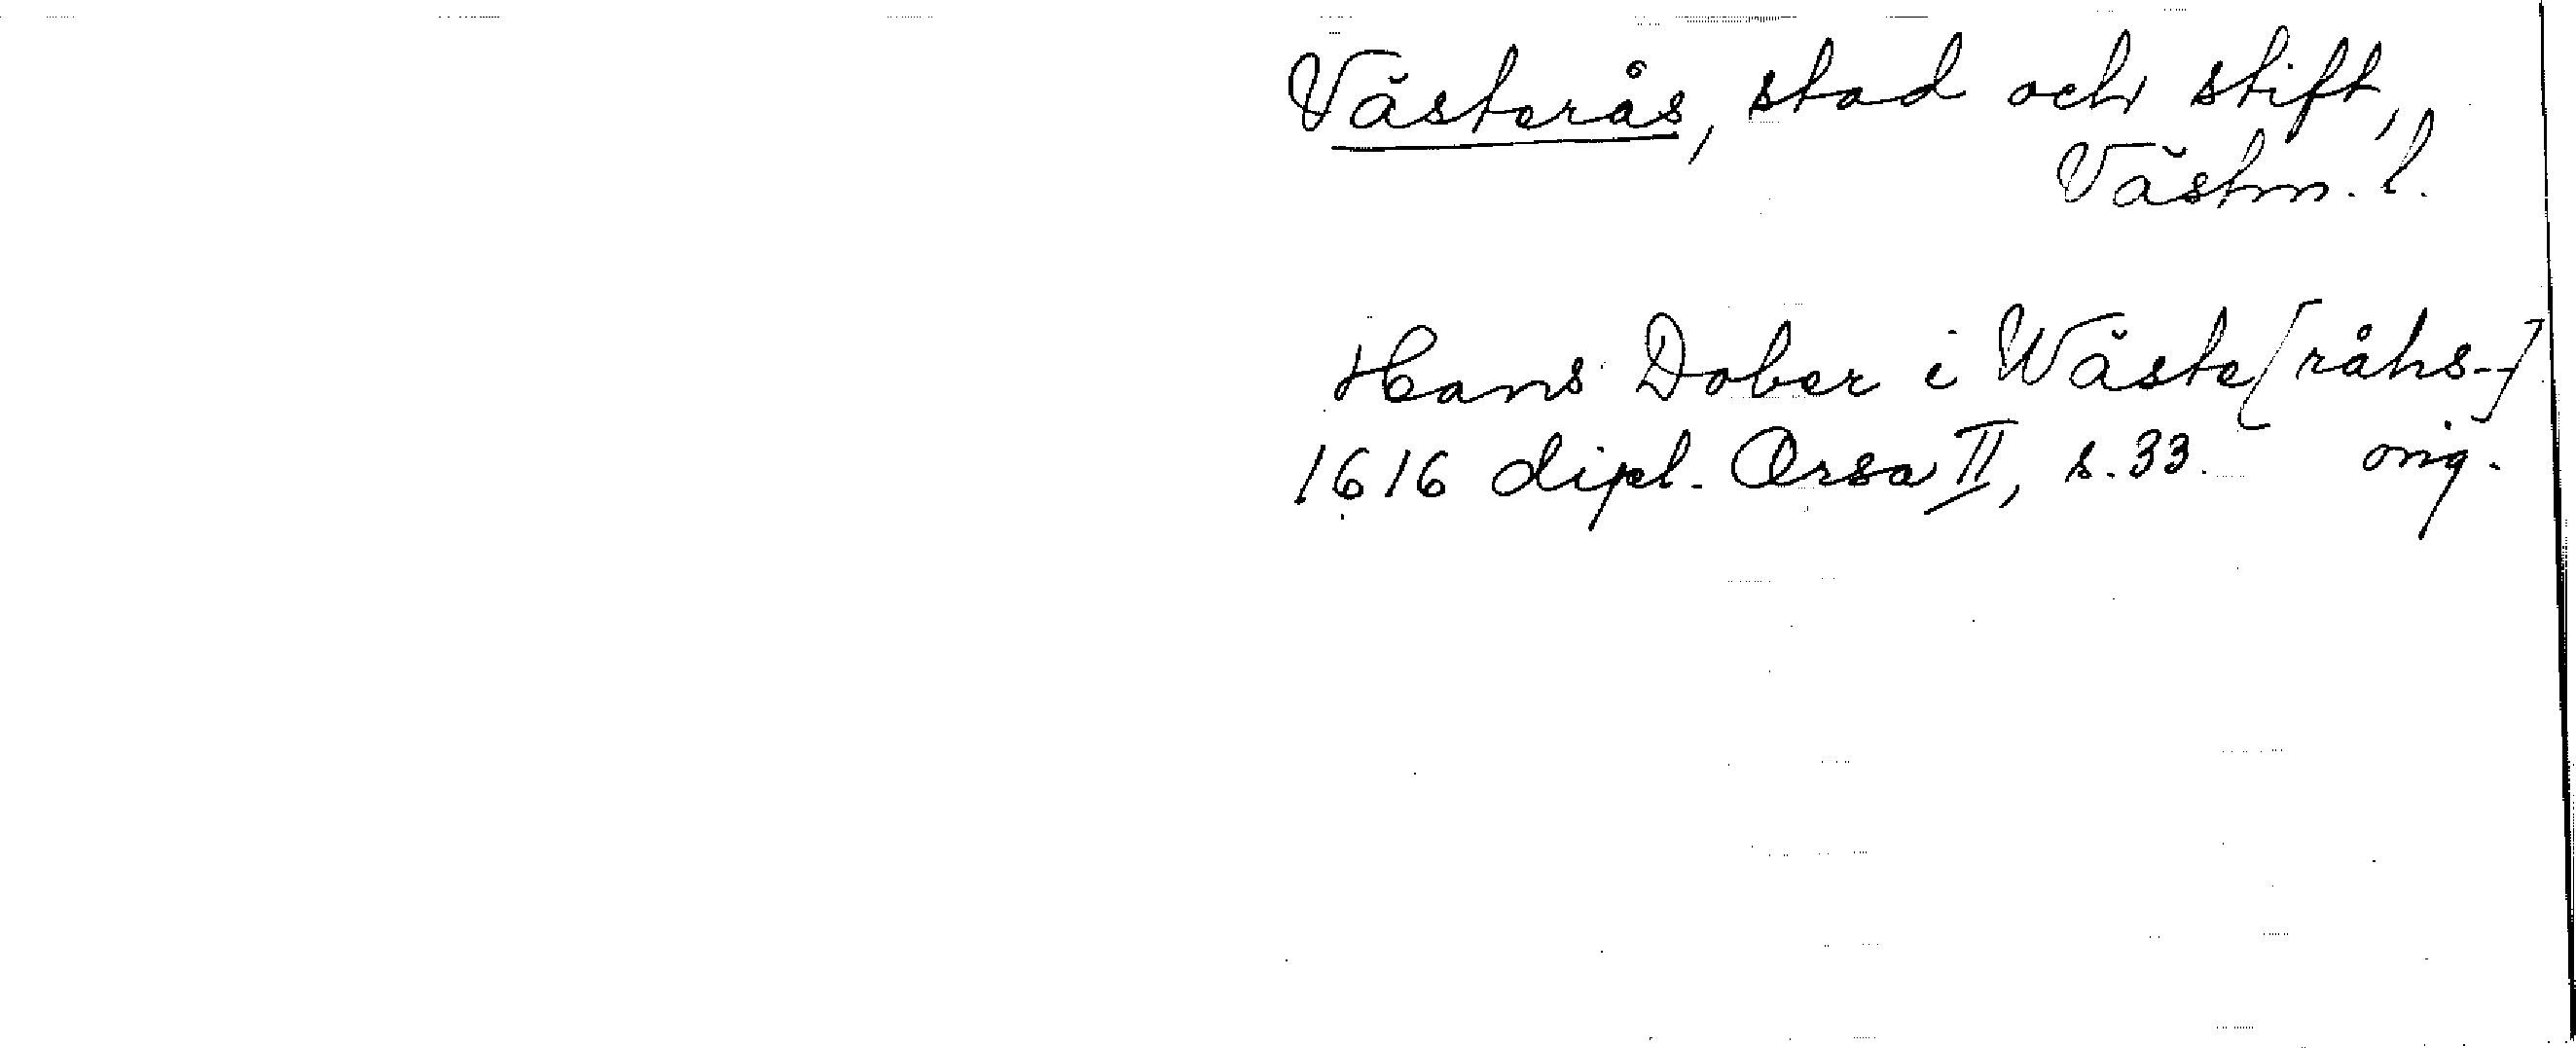 Västerås, stad och stift,
Västm. l.
Hans Dober i Wäste[råhs-]
1616 dipl. Orsa II, s. 33. orig.